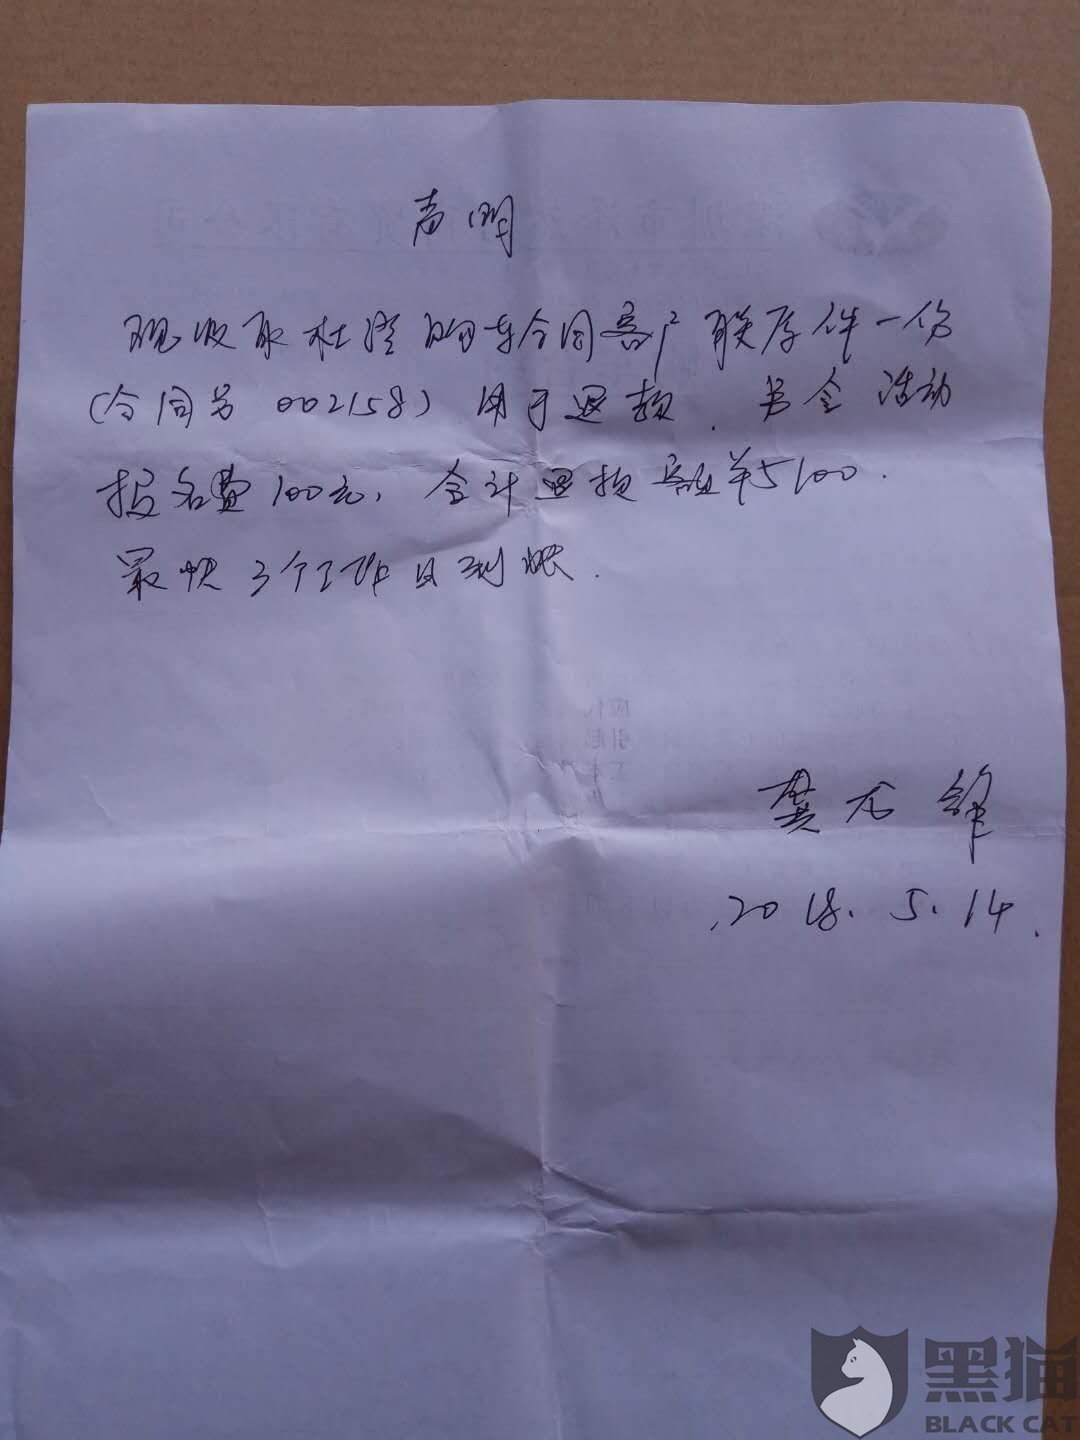 声明
现收取杜滢购车合同客户联原件一份
(合同号 002158) 用于退款. 另含活动
报名费100元, 合计退款额¥5100.
最快3个工作日到账.
龚龙
2018.5.14.
黑猫
BLACK CAT